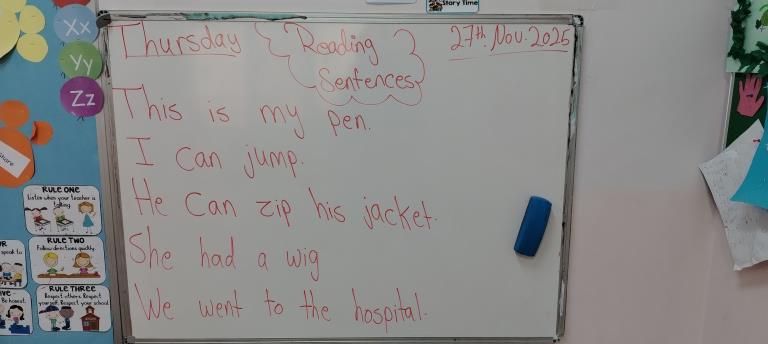 Story Time
Thursday
Reading
Sentences
27th. Nov. 2025
This is my pen.
I can jump.
He can zip his jacket.
She had a wig
We went to the hospital.
Xx
Yy
Zz
share
RULE ONE
Listen when your teacher is
talking
RULE TWO
Follow directions quickly.
RULE THREE
Respect others. Respect
yourself. Respect your school
speak to
Be honest.